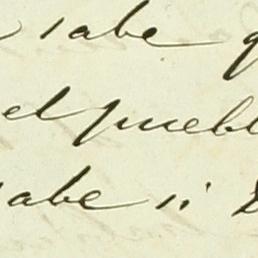 sabe q
el puebl
sabe si